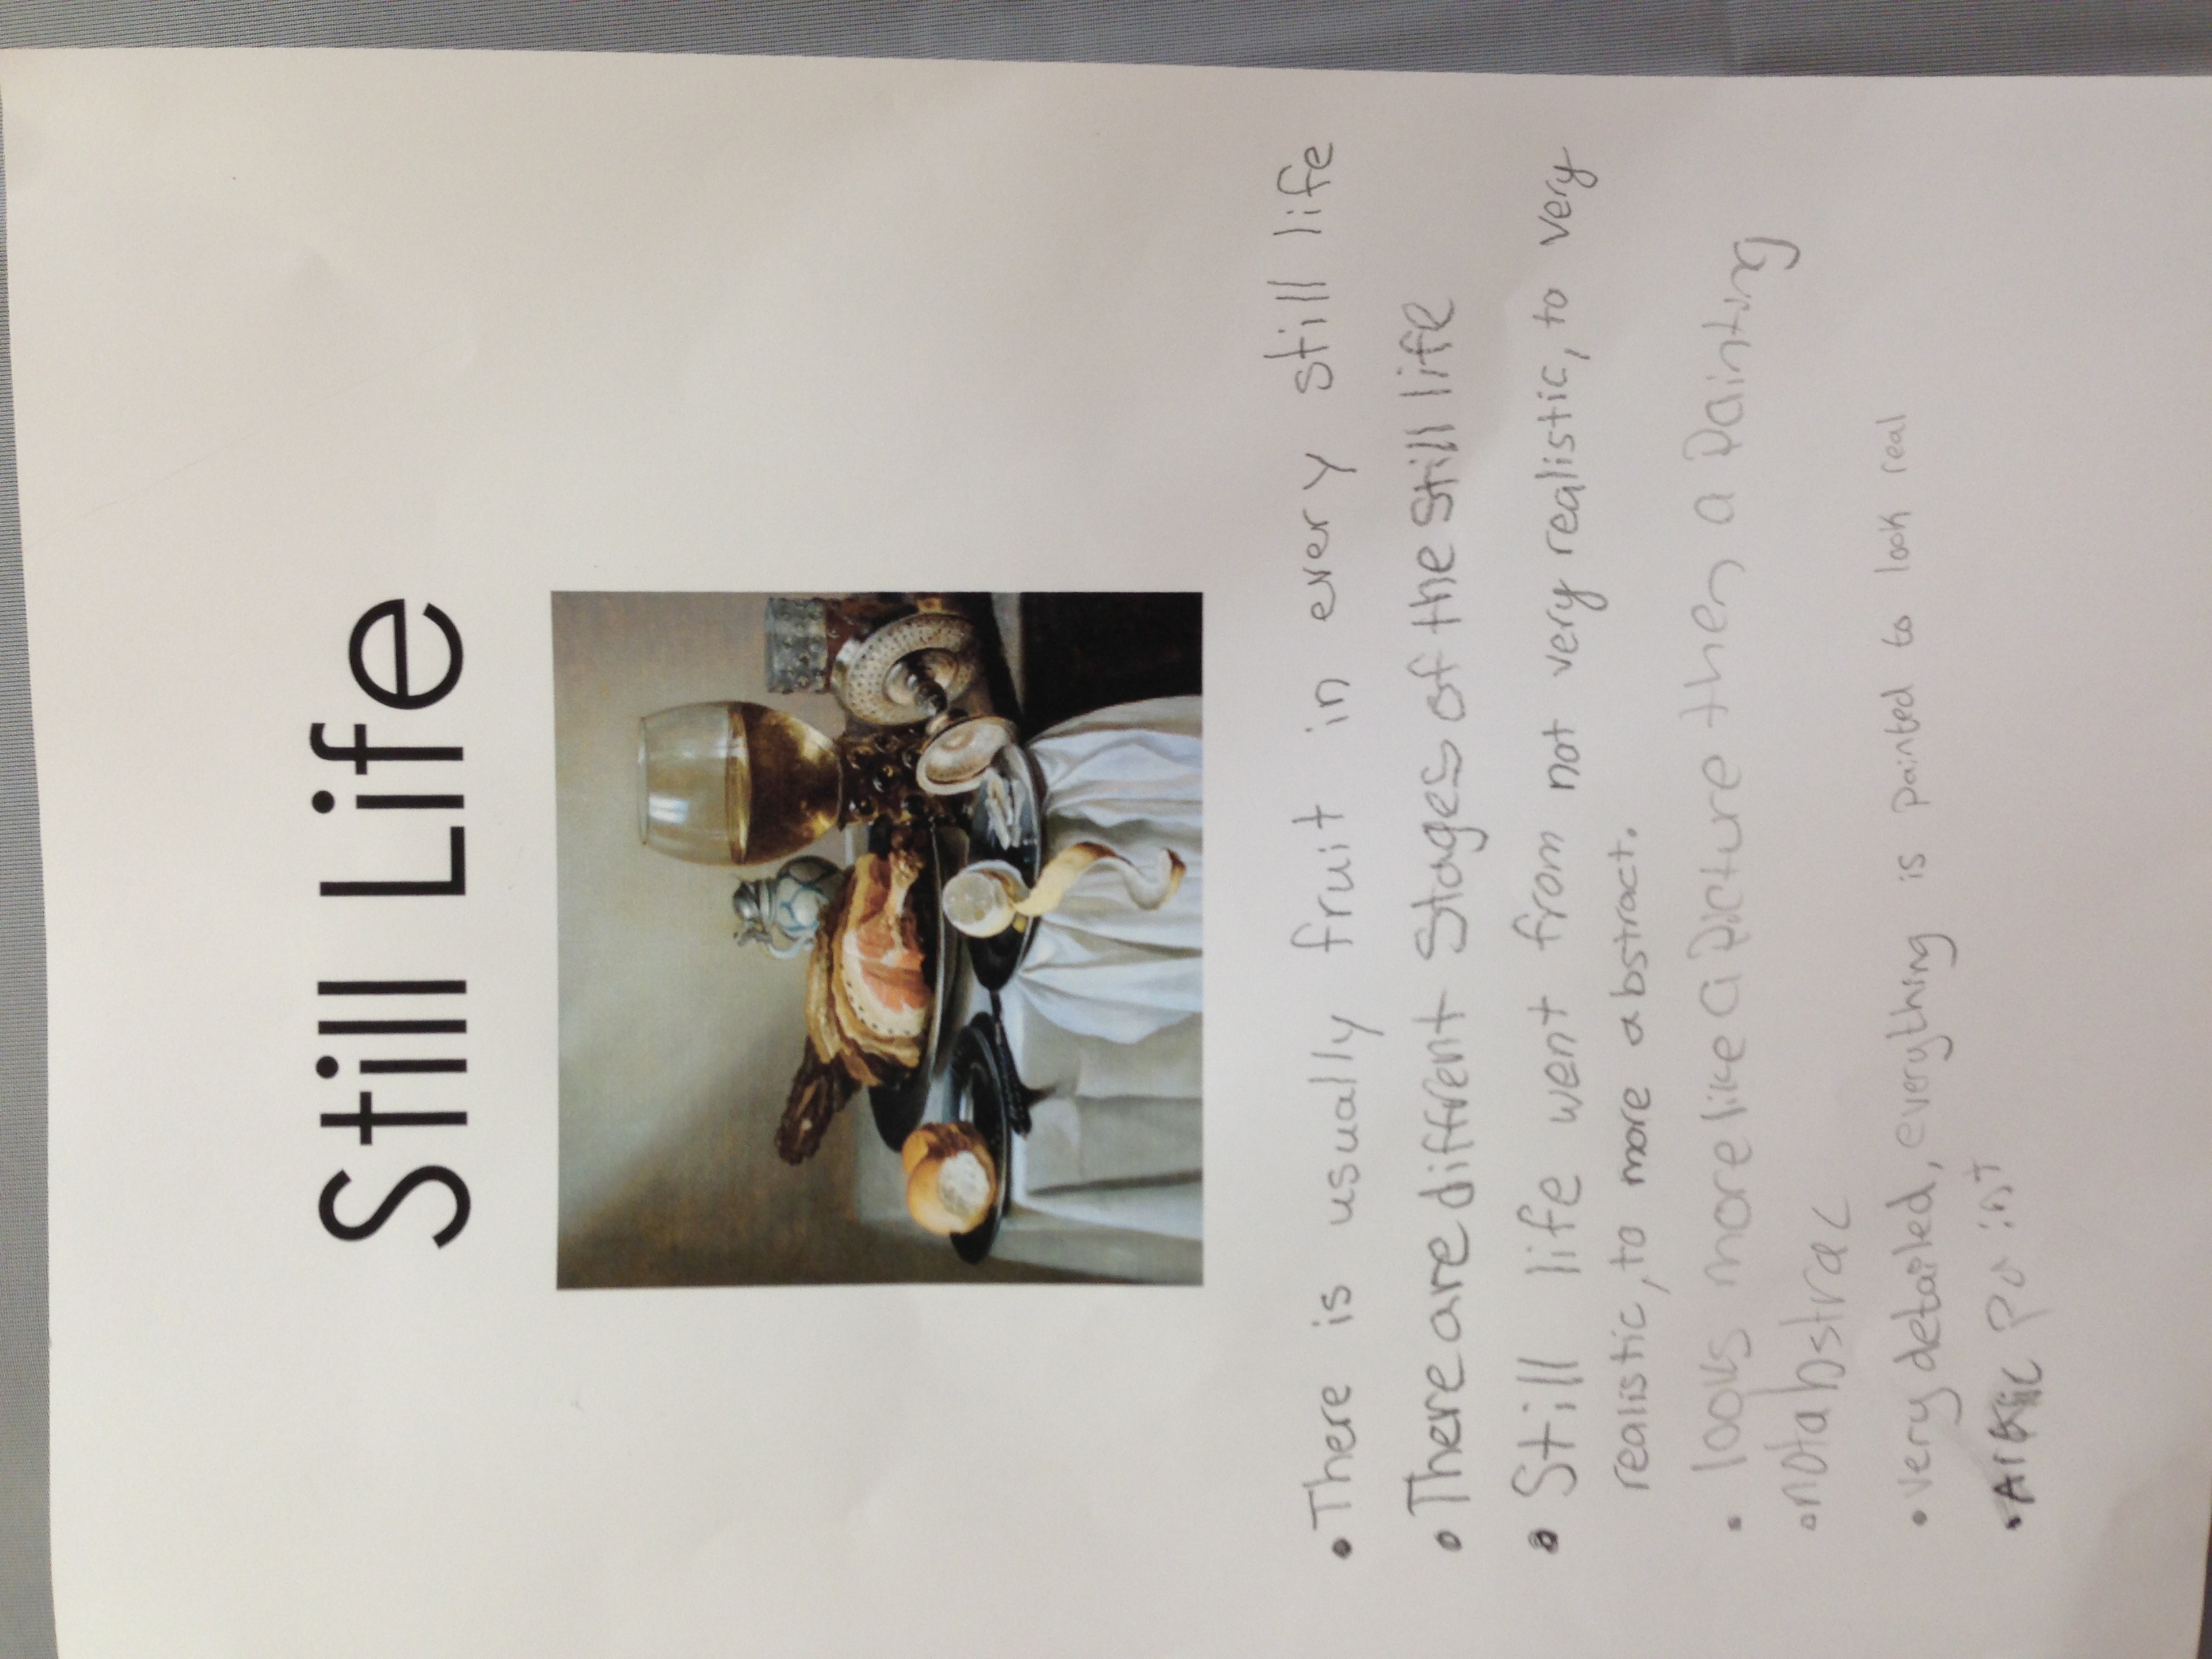 Still Life
• There is usually fruit in every still life
• There are diffrent Stages of the Still life
• Still life went from not very realistic, to very
realistic, to more abstract.
• looks more like a picture then a painting
• not abstrac
• very detailed, everything is painted to look real
• paint